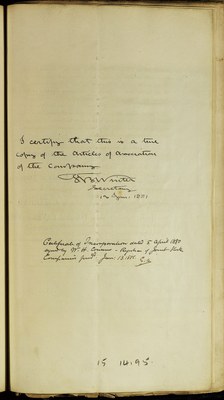 I certify that this is a true
copy of the Articles of Association
of the Company
Secretary
1881
Certificate of Incorporation dated 5 April 1880
signed by W. H. Cousins - Registrar of Joint Stock
Companies prod. Jan: 13. 1881.
15 1495